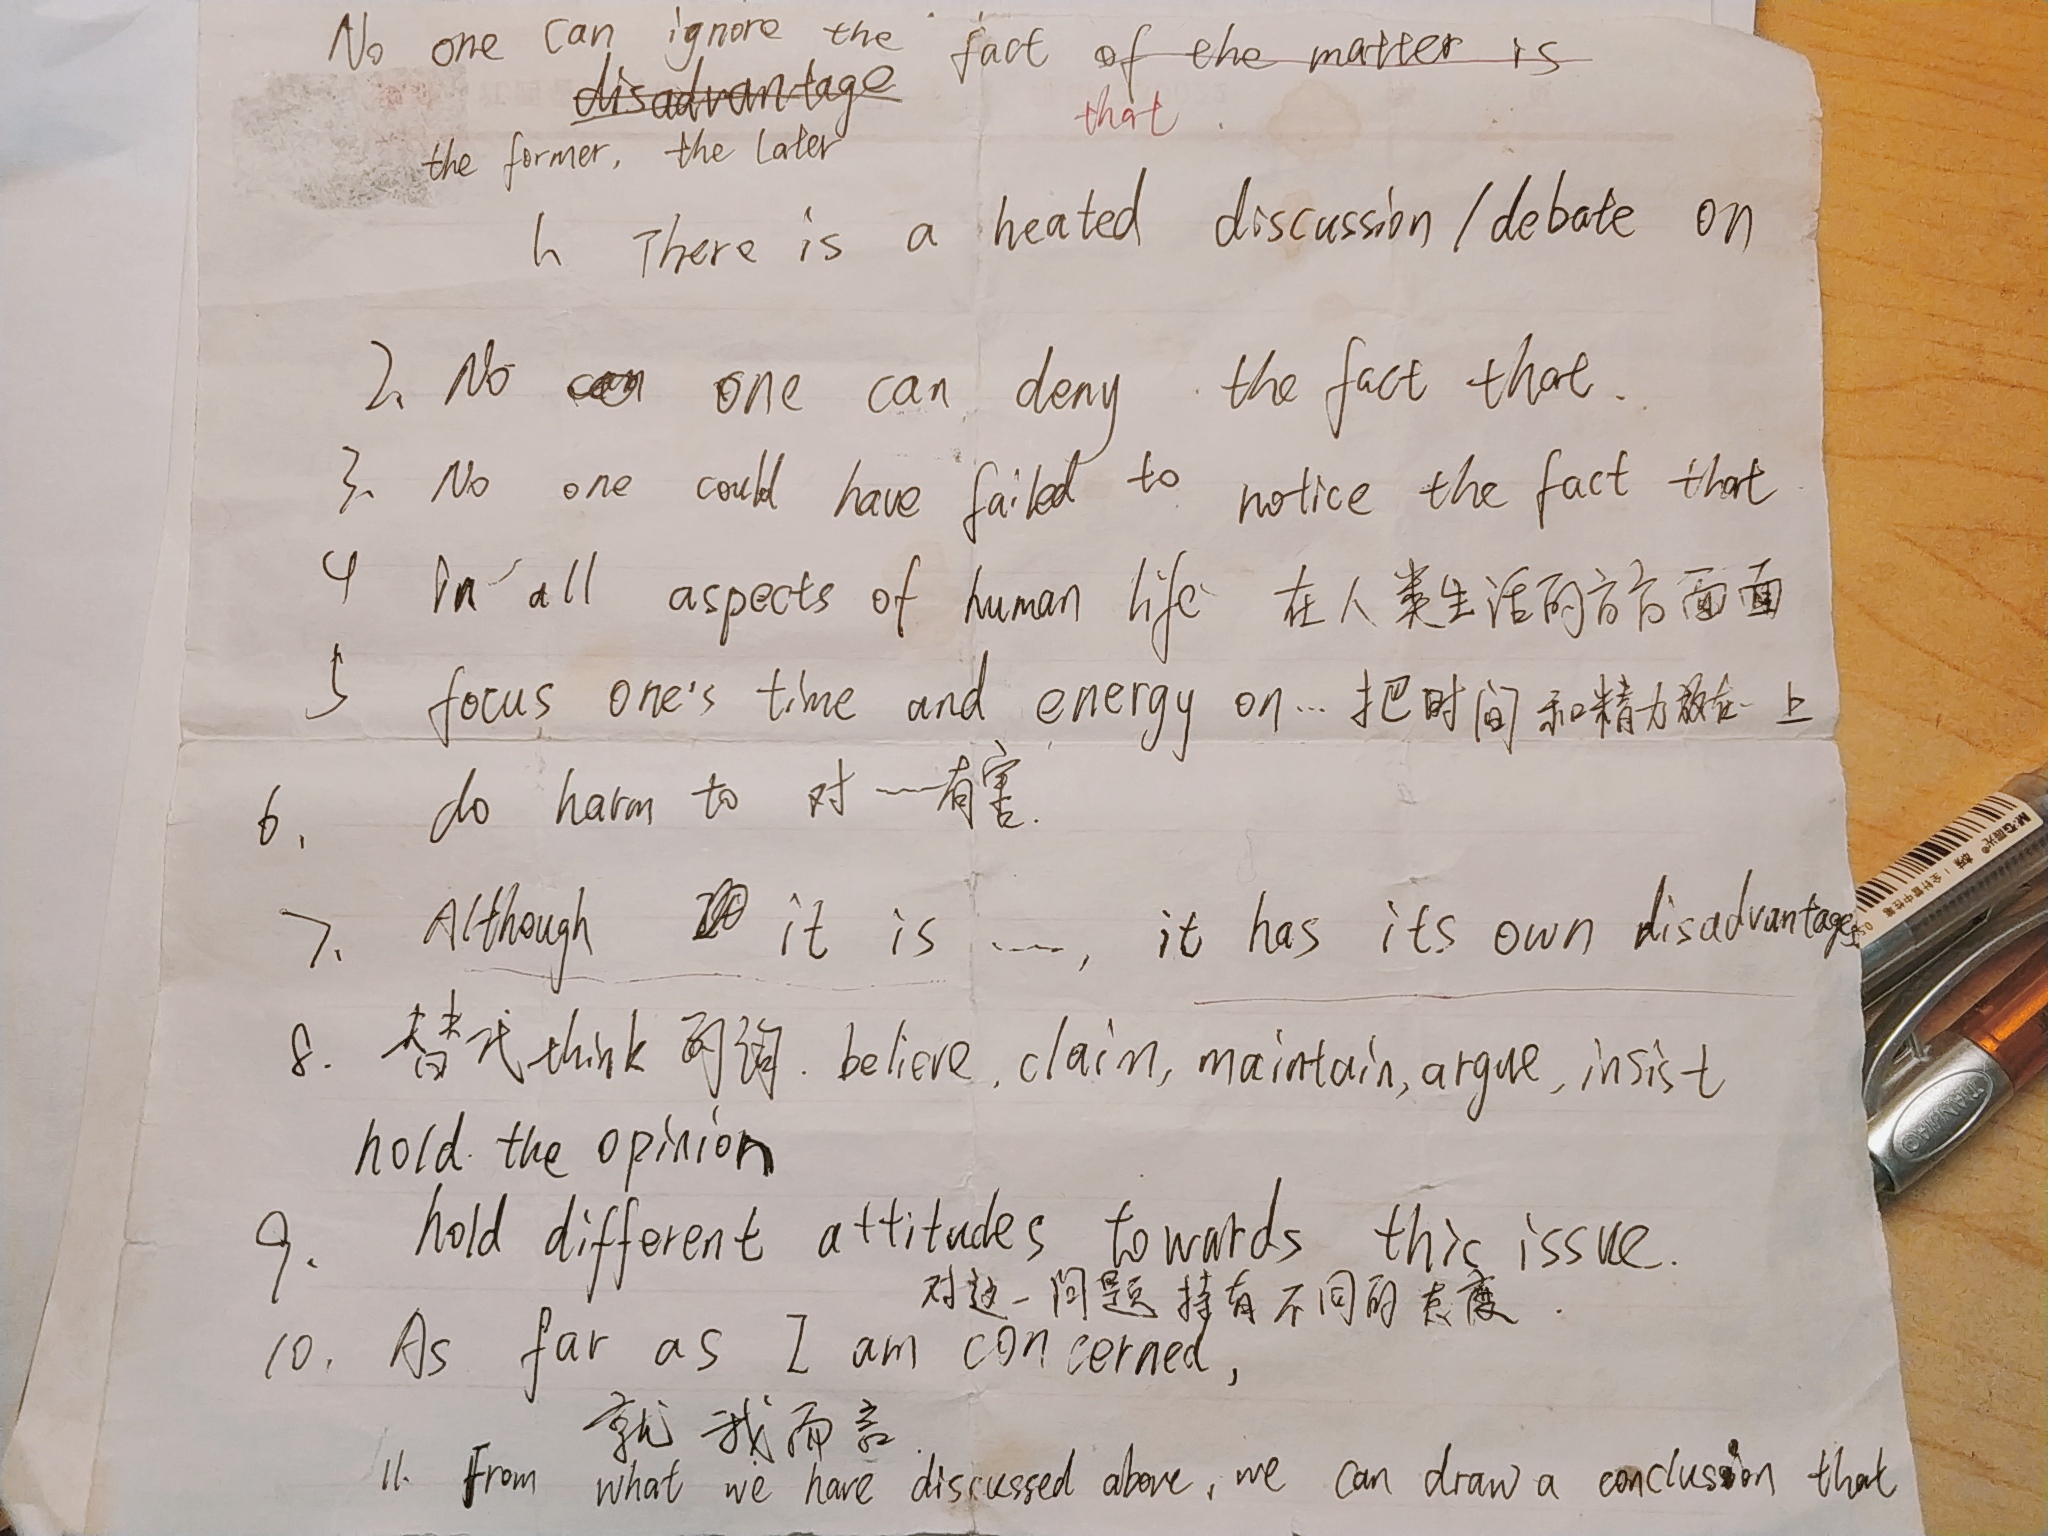 No one can ignore the fact of the matter is
disadvantage
that.
the former, the later
1. There is a heated discussion/debate on
2. No can one can deny the fact that.
3. No one could have failed to notice the fact that
4 In all aspects of human life 在人类生活的方方面面
5 focus one's time and energy on... 把时间和精力放在…上
6. do harm to 对……有害.
7. Although it is ……, it has its own disadvantages
8. 替代think的词. believe, claim, maintain, argue, insist
hold the opinion
9. hold different attitudes towards this issue.
对这一问题持有不同的态度.
10. As far as I am concerned,
就我而言.
11. From what we have discussed above, we can draw a conclusion that
M&G晨光